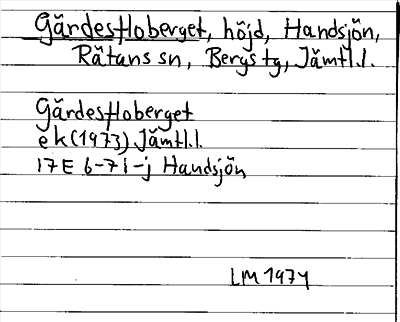 Gärdesfloberget, höjd, Handsjön,
Rätans sn, Bergs tg, Jämtl.l.
Gärdesfloberget
ek (1973) Jämtl.l.
17E 6-7i-j Handsjön
LM 1974